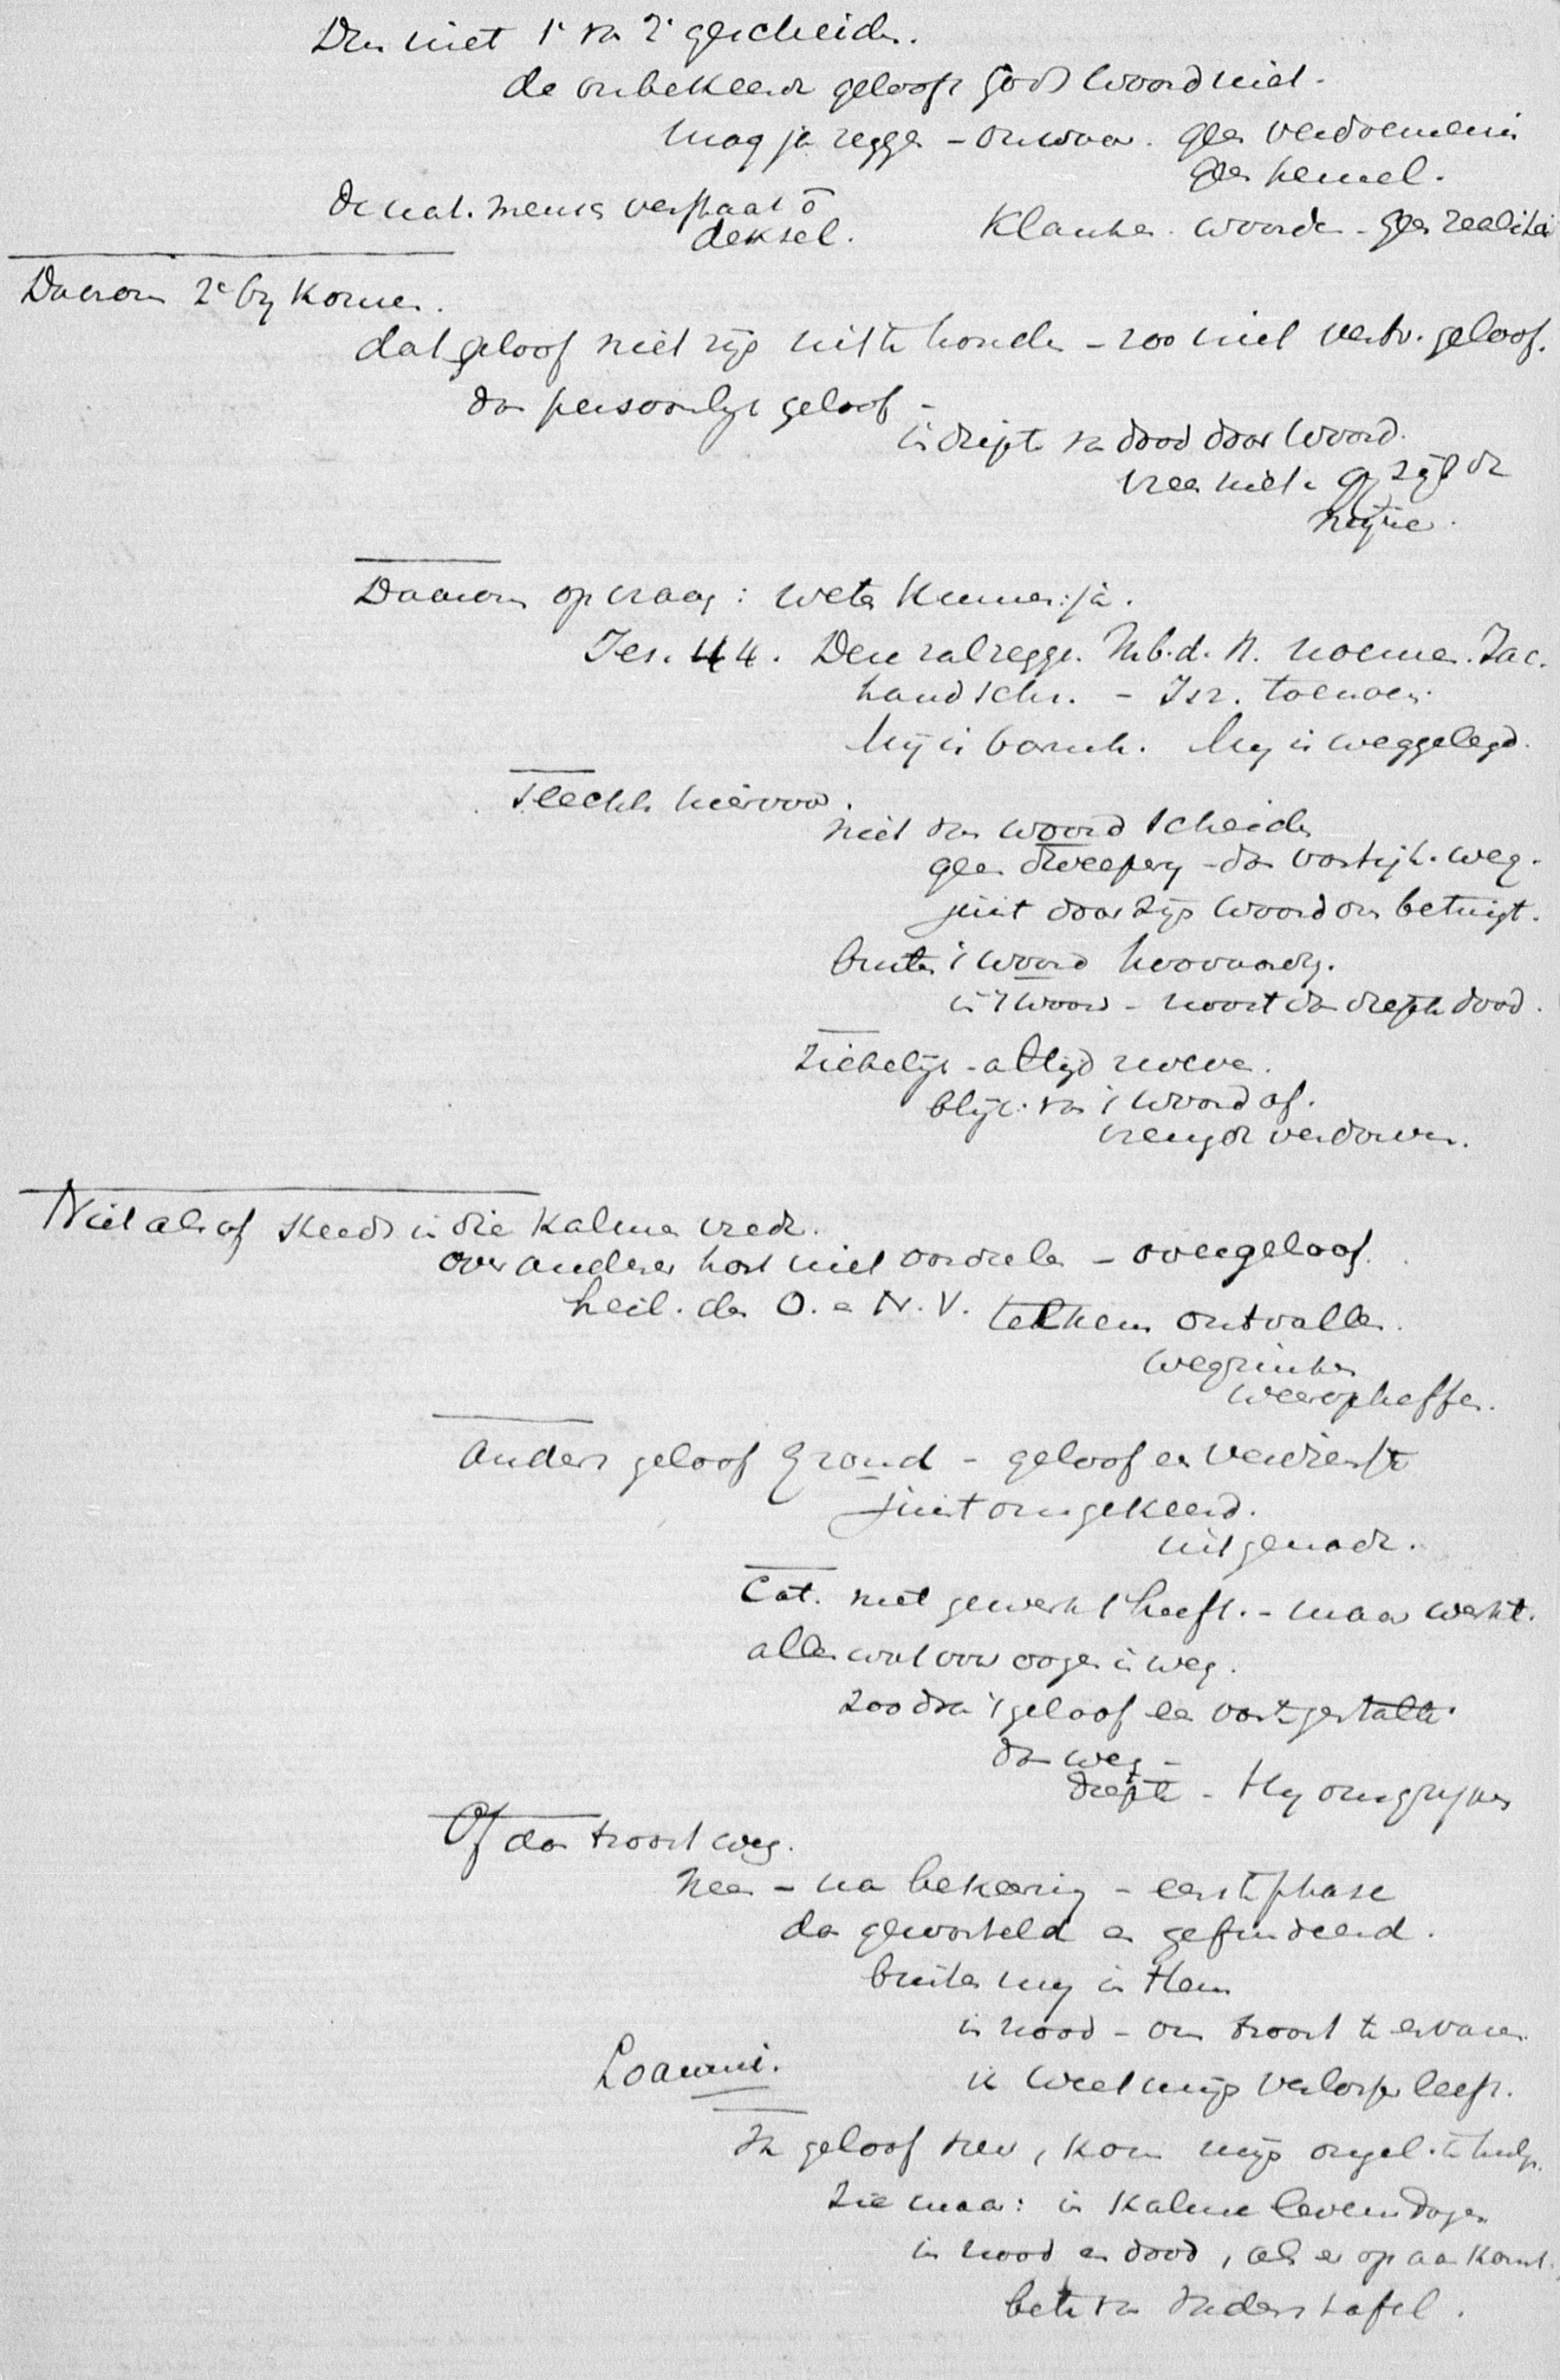 Dus niet 1e van 2e gescheiden.
de onbekeerde gelooft Gods Woord niet.
mag ja zegge - onwaar. geen verdoemenis
geen hemel.
de nat. mensch verstaat ō
deksel.
Klanken. woorden - geen realiteit
Daarom 2e bij komen.
dat geloof niet zijs uit te houden - zoo niet vertr. geloof.
dan persoonlijk geloof -
in diepte van dood door Woord.
vrees niet. gij zijt de
mijne.
Daarom op vraag: weten kunnen: ja.
Jes. 44. Deze zal zegge. Ik b. d. H. noemen. Jac.
hand schr. - Isr. toenoem.
Mij is barmh. Mij is weggelegd.
Slechts hiervoor.
niet van woord scheiden
geen dweeperij - dan vorstelijk. weg.
juist door Zijn Woord ons betuigt.
buiten 't woord hoovaardij.
in 't woord - nooit dan diepte dood.
Ziekelijk - altijd zweven.
blijv. van 't woord af.
vreugde verdorven.
Niet alsof steeds in die kalme vrede.
over anderen hart niet oordeelen - overgeloof.
heil. des O. en N. V. telkens ontvallen.
wegzinken
weeropheffen.
Anders geloof grond - geloof en verdienste
juist omgekeerd.
uit genade.
Cat. niet gewerkt heeft. - maar werkt.
alles wat voor oogen is weg.
zoodra 't geloof een vaste gestalte
dan weg -
diepte - Hij omgrijpen
Of dan troost weg.
Neen - na bekeering - eerste phase
dan geworteld en gefundeerd.
buiten mij in Hem
in nood - om troost te ervaren.
ik weet mijn Verlosser leeft.
Loammi.
Ik geloof Heer, kom mijn ongel. te hulp.
Zie maar: in kalme levensdagen
in nood en dood, als er op aan komt.
bete van Vaders tafel.